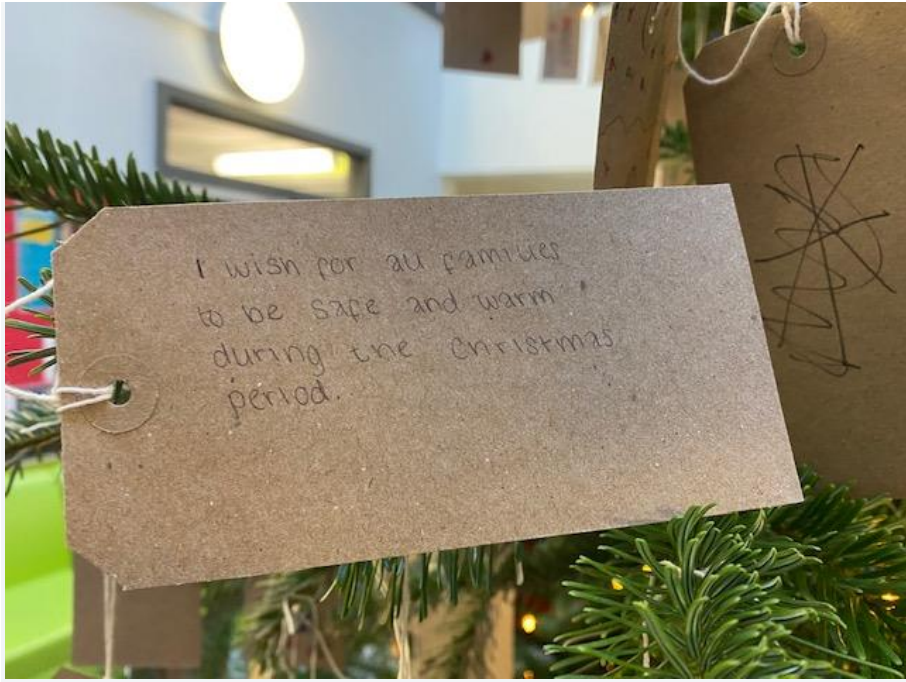 I wish for all families
to be safe and warm
during the Christmas
period.